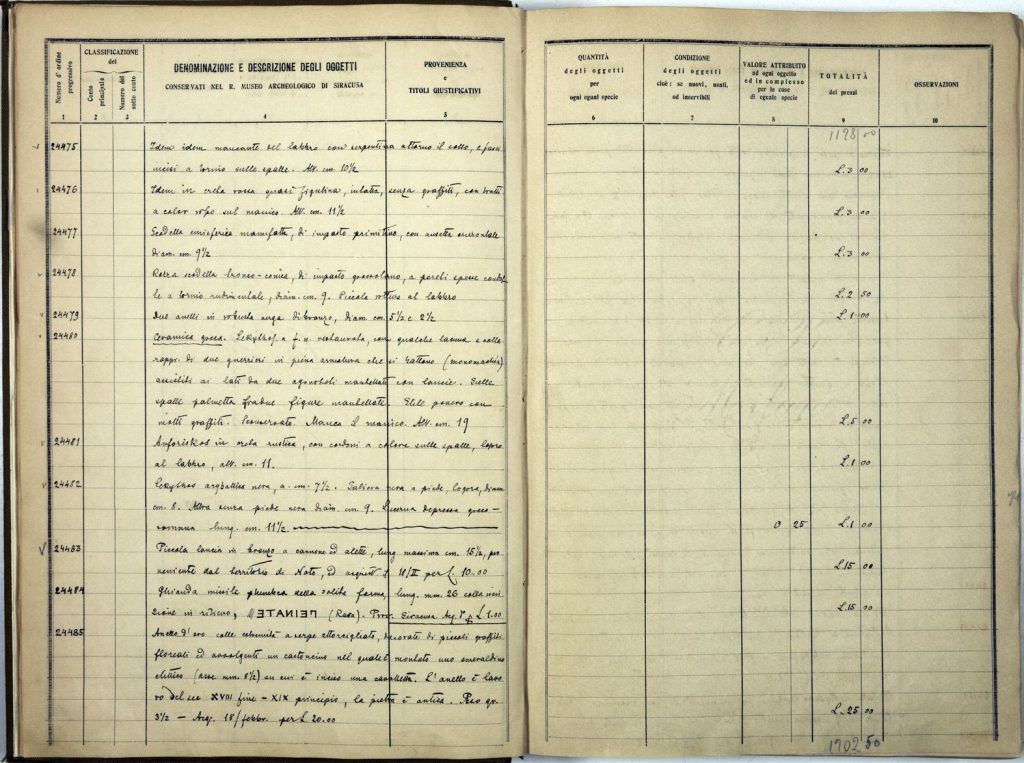 Numero d'ordine progressivo
CLASSIFICAZIONE
del
Conto principale
Numero del sotto conto
DENOMINAZIONE E DESCRIZIONE DEGLI OGGETTI
CONSERVATI NEL R. MUSEO ARCHEOLOGICO DI SIRACUSA
PROVENIENZA
e
TITOLI GIUSTIFICATIVI
1 2 3 4 5
24475 Idem idem mancante del labbro con serpentina attorno il collo, e fasci
incisi a tornio sulle spalle. Alt. cm. 10½
24476 Idem in creta rossa quasi figulina, intatta, senza graffiti, con tratti
a color sul manico. Alt. cm. 11½
24477 Scodella emisferica manufatta, di impasto primitivo, con ansetta orizzontale
diam. cm. 9½
24478 Rozza scodella tronco-conica, di impasto grossolano, a parchi spesse
a tornio rudimentale, diam. cm. 9. Piccola rottura al labbro
24479 Due anelli in robusta verga di bronzo, diam. cm. 5½ e 2½
24480 Ceramica greca. Lekythos a f. n. restaurata, con qualche lacuna
rappr. di due guerrieri in piena armatura che si battono (monomachia)
assistiti ai lati da due mantellati con lancie. Sulle
spalle palmetta fra due figure mantellate. Stile povero con
molti graffiti. Manca il manico. Alt. cm. 19
24481 Anforiskos in creta rustica, con cordoni a colore sulle spalle,
al labbro, alt. cm. 11.
24482 Lekythos nera, a. cm. 7½. Saliera nera a piede, logora, diam.
cm. 8. Altra senza piede nera diam. cm. 9. Lucerna depressa greco-
romana lung. cm. 11½
24483 Piccola lancia in bronzo a cannone ed alette, lung. massima cm. 15½, pro
veniente dal territorio di Noto, ed 18/II per £. 10.00
24484 Ghianda missile plumbea della solita forma, lung. mm. 26 colla iscri
zione in rilievo, (Rara). Prov. Siracusa Acq. £ 1.00
24485 Anello d'oro colle estremità a serpe attorcigliato, decorato di piccoli graffiti
floreali ed avvolgenti un castoncino nel quale è montato uno smeraldino
elittico (asse mm. 8½) su cui è inciso una cavalletta. L'anello è lavo
ro del sec XVIII fine - XIX principio, la pietra è antica. Peso gr.
3½ — Acq. 18/febbr. per £ 20.00
QUANTITÀ
degli oggetti
per
ogni egual specie
CONDIZIONE
degli oggetti
cioè: se nuovi, usati,
od inservibili
VALORE ATTRIBUITO
ad ogni oggetto
ed in complesso
per le cose
di eguale specie
TOTALITÀ
dei prezzi
OSSERVAZIONI
6 7 8 9 10
1198 00
L. 3 00
L. 3 00
L. 3 00
L. 2 50
L. 1 00
L. 5 00
L. 1 00
0 25 L. 1 00
L. 15 00
L. 15 00
L. 25 00
50